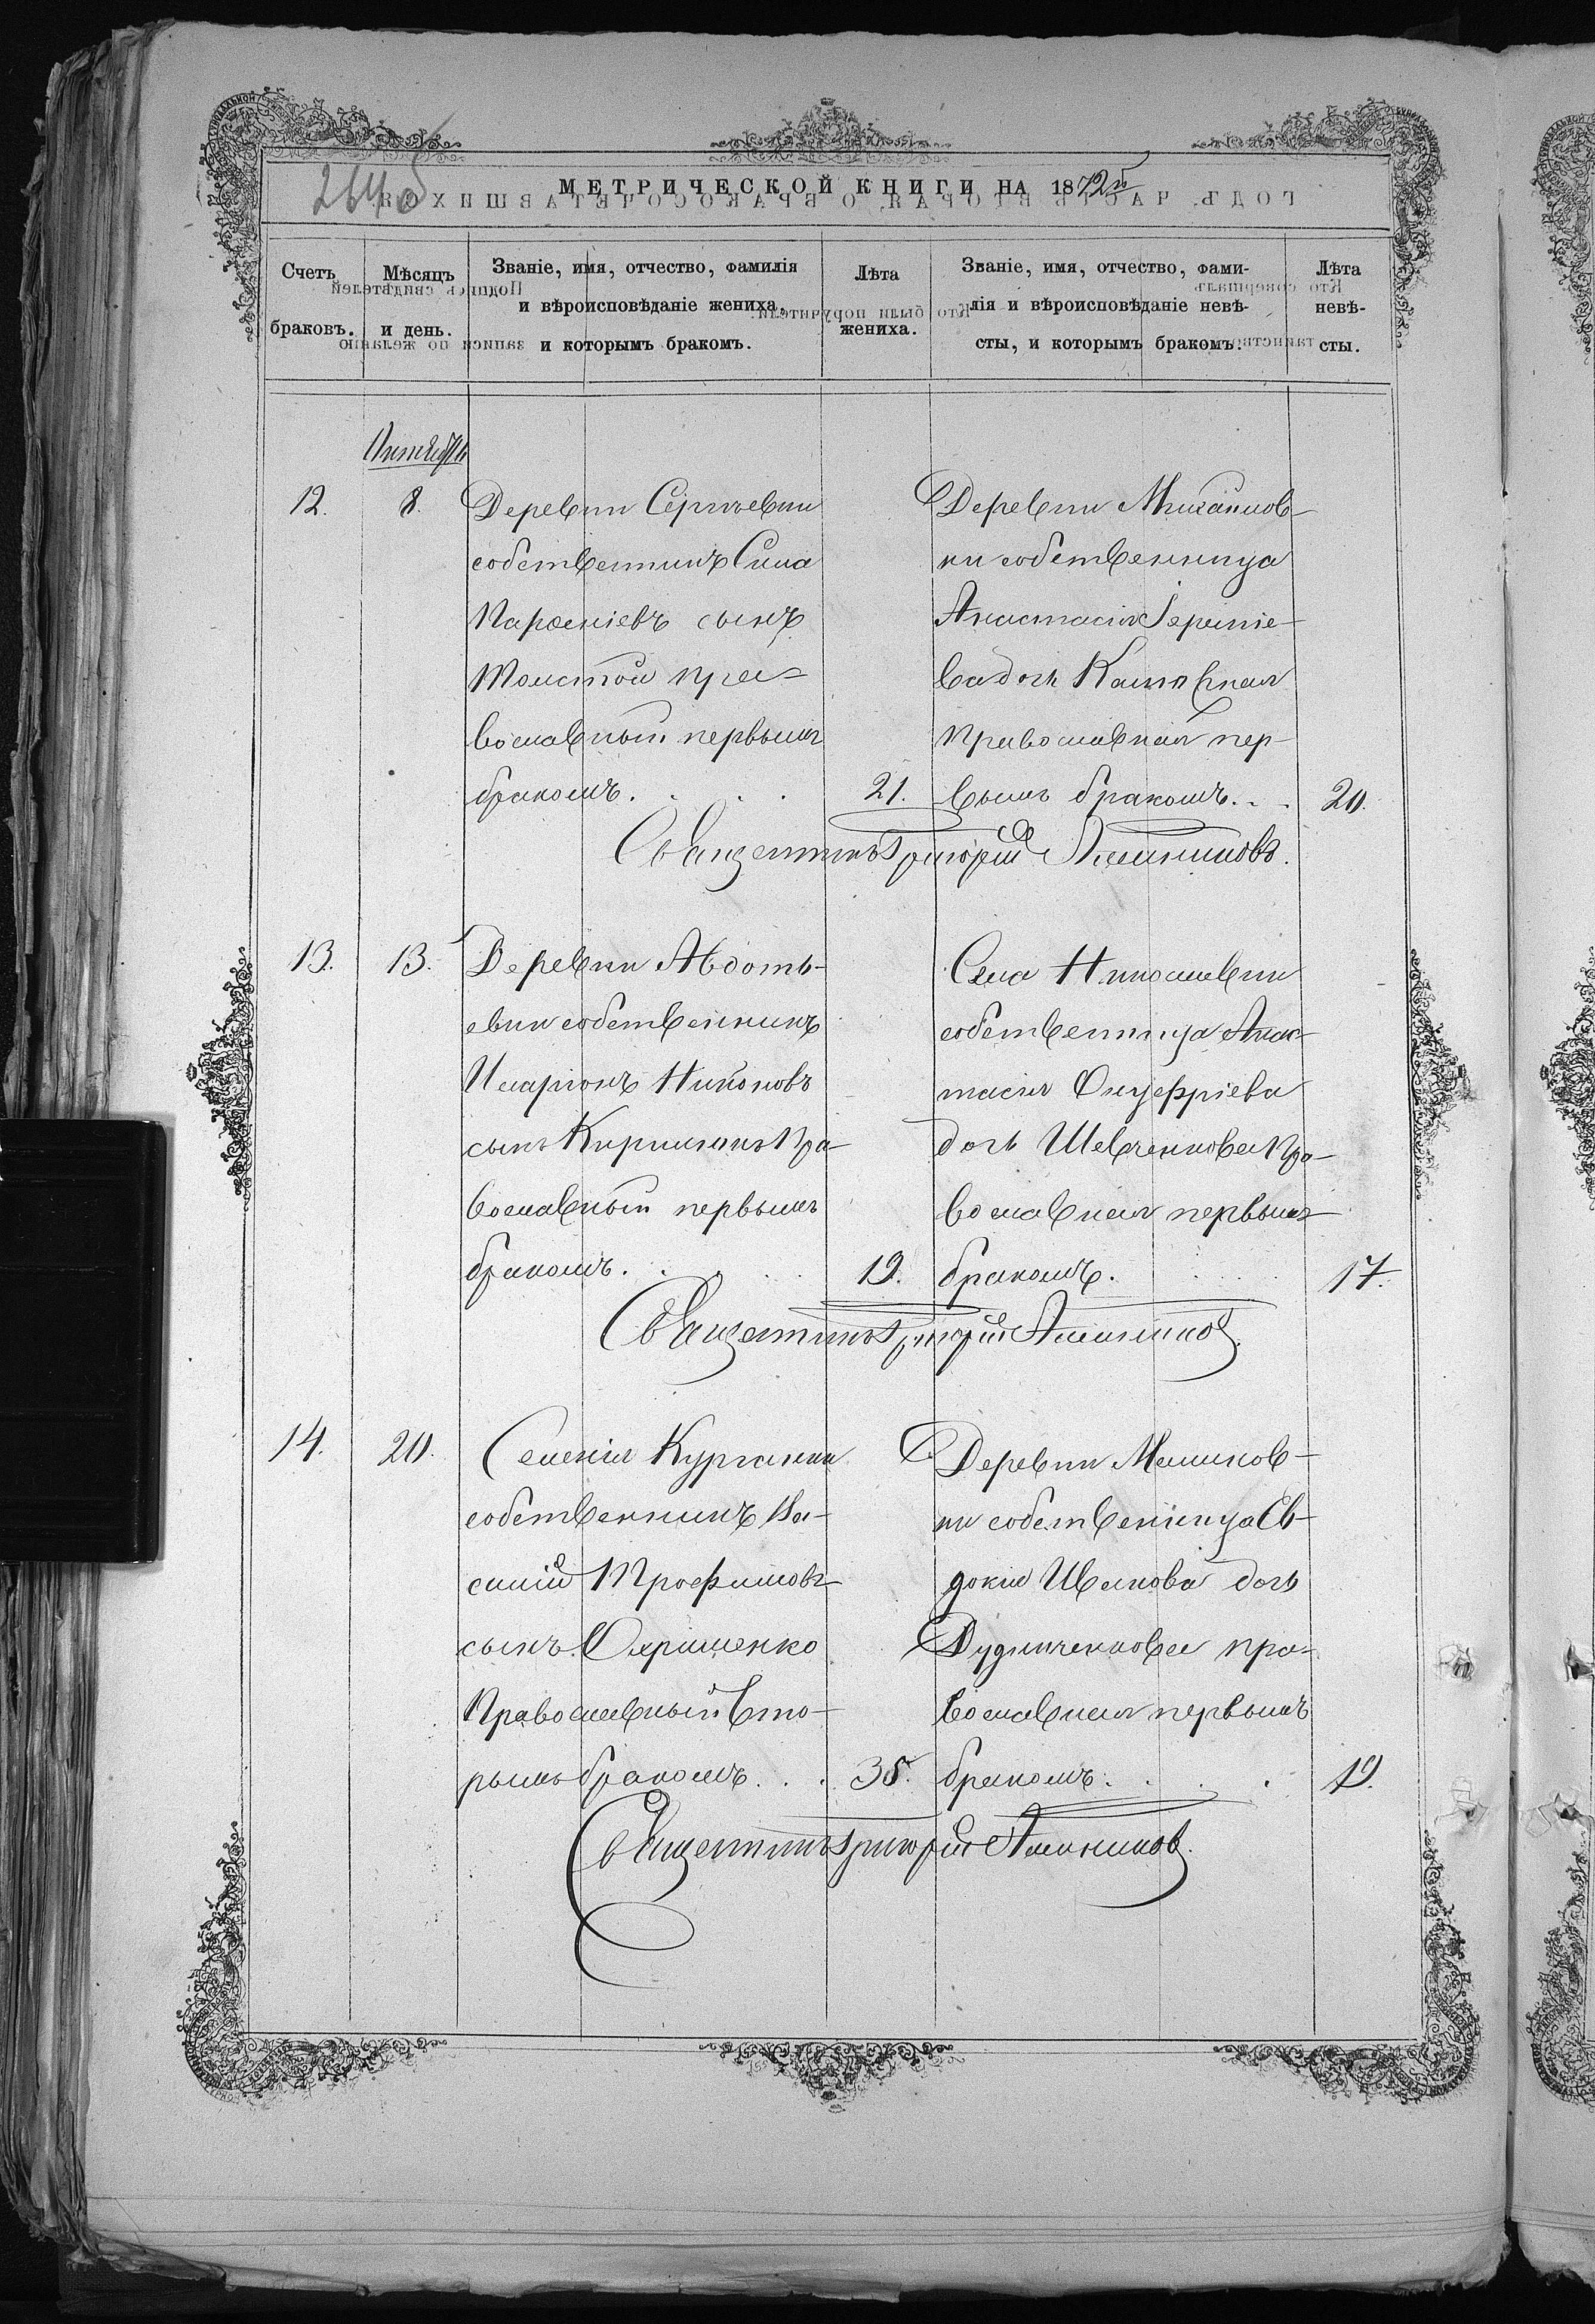 264 об
МЕТРИЧЕСКОЙ КНИГИ НА 1872й
Счетъ браковъ.
Мѣсяцъ и день.
Званіе, имя, отчество, фамилія
и вѣроисповѣданіе жениха,
и которымъ бракомъ.
Лѣта жениха.
Званіе, имя, отчество, фами-
лія и вѣроисповѣданіе невѣ-
сты, и которымъ бракомъ.
Лѣта невѣ-
сты.
Октябрь
12. 8.
Деревни Сергѣевки
собственникъ Сила
Парѳеніевъ сынъ
Толстой пра-
вославный первымъ
бракомъ. 21.
Деревни Михайлов-
ки собственница
Анастасія
ва дочь
православная пер-
вымъ бракомъ. 20.
Священникъ Григорій
13. 13.
Деревни Авдоть-
евки собственникъ
Иларіонъ Никоновъ
сынъ Пра-
вославный первымъ
бракомъ. 19.
Села Николаевки
собственница Анас-
тасія Онуфріева
дочь Шевченкова Пра-
вославная первымъ
бракомъ. 17.
Священникъ Григорій
14. 20.
Селенія Курганки
собственникъ Ва-
силій Трофимовъ
сынъ Охрименко
Православный вто-
рымъ бракомъ. 35.
Деревни
ки собственница Ев-
докія дочь
пра-
вославная первымъ
бракомъ. 19.
Священникъ Григорій